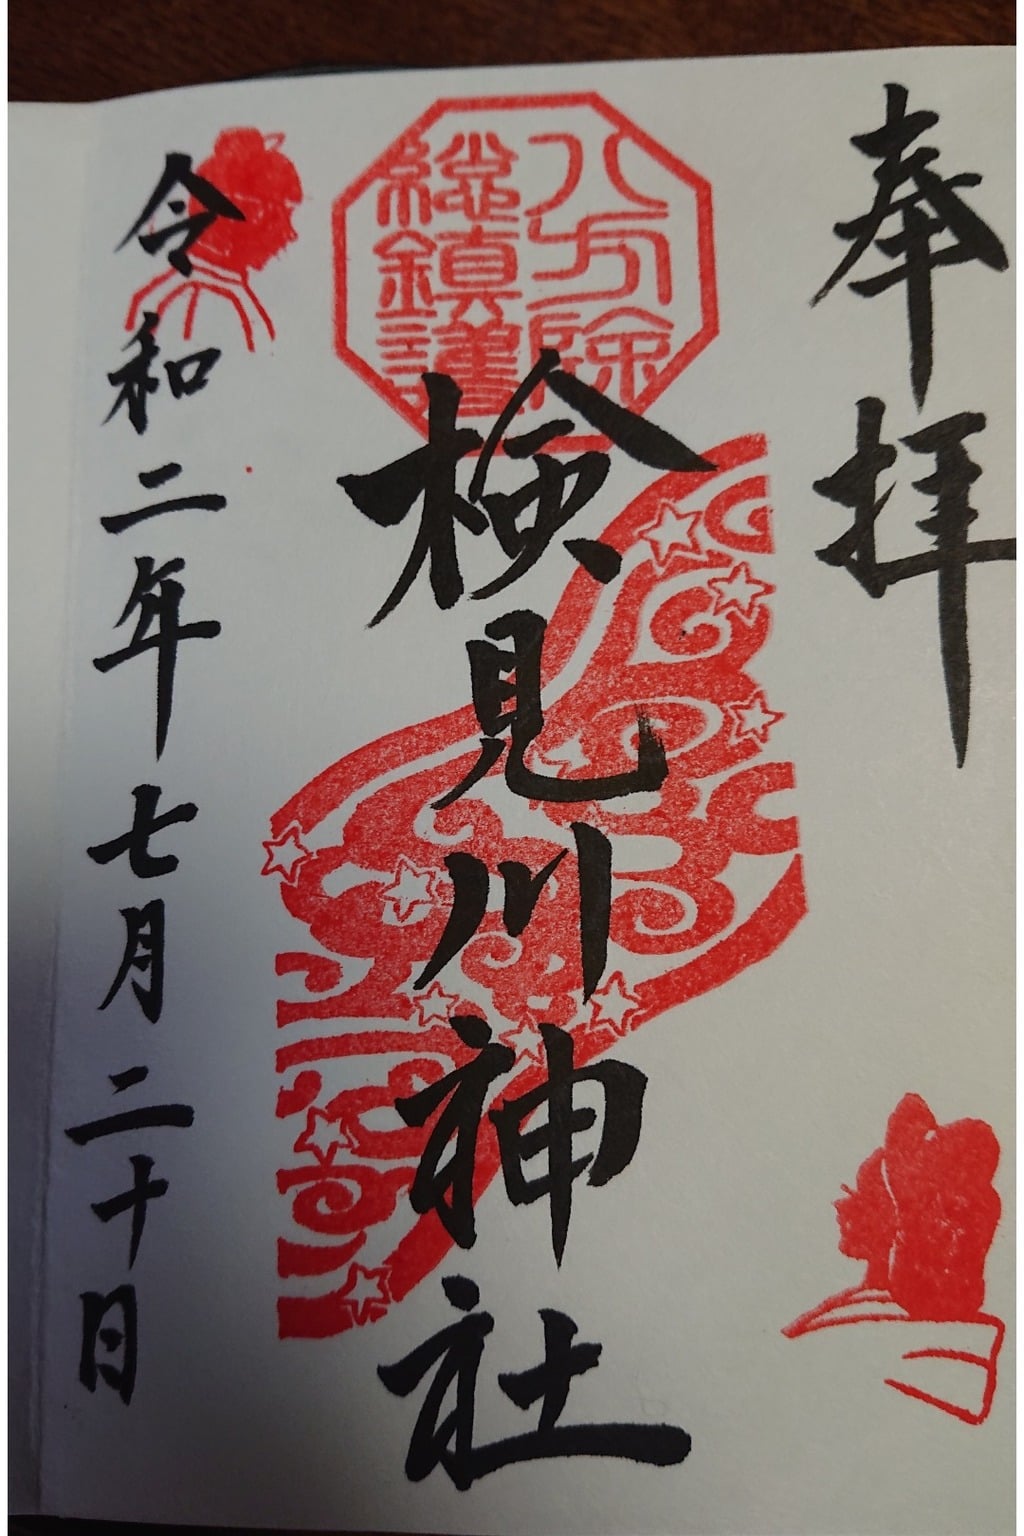 奉拝
八方除
総鎮護
検見川神社
令和二年七月二十日